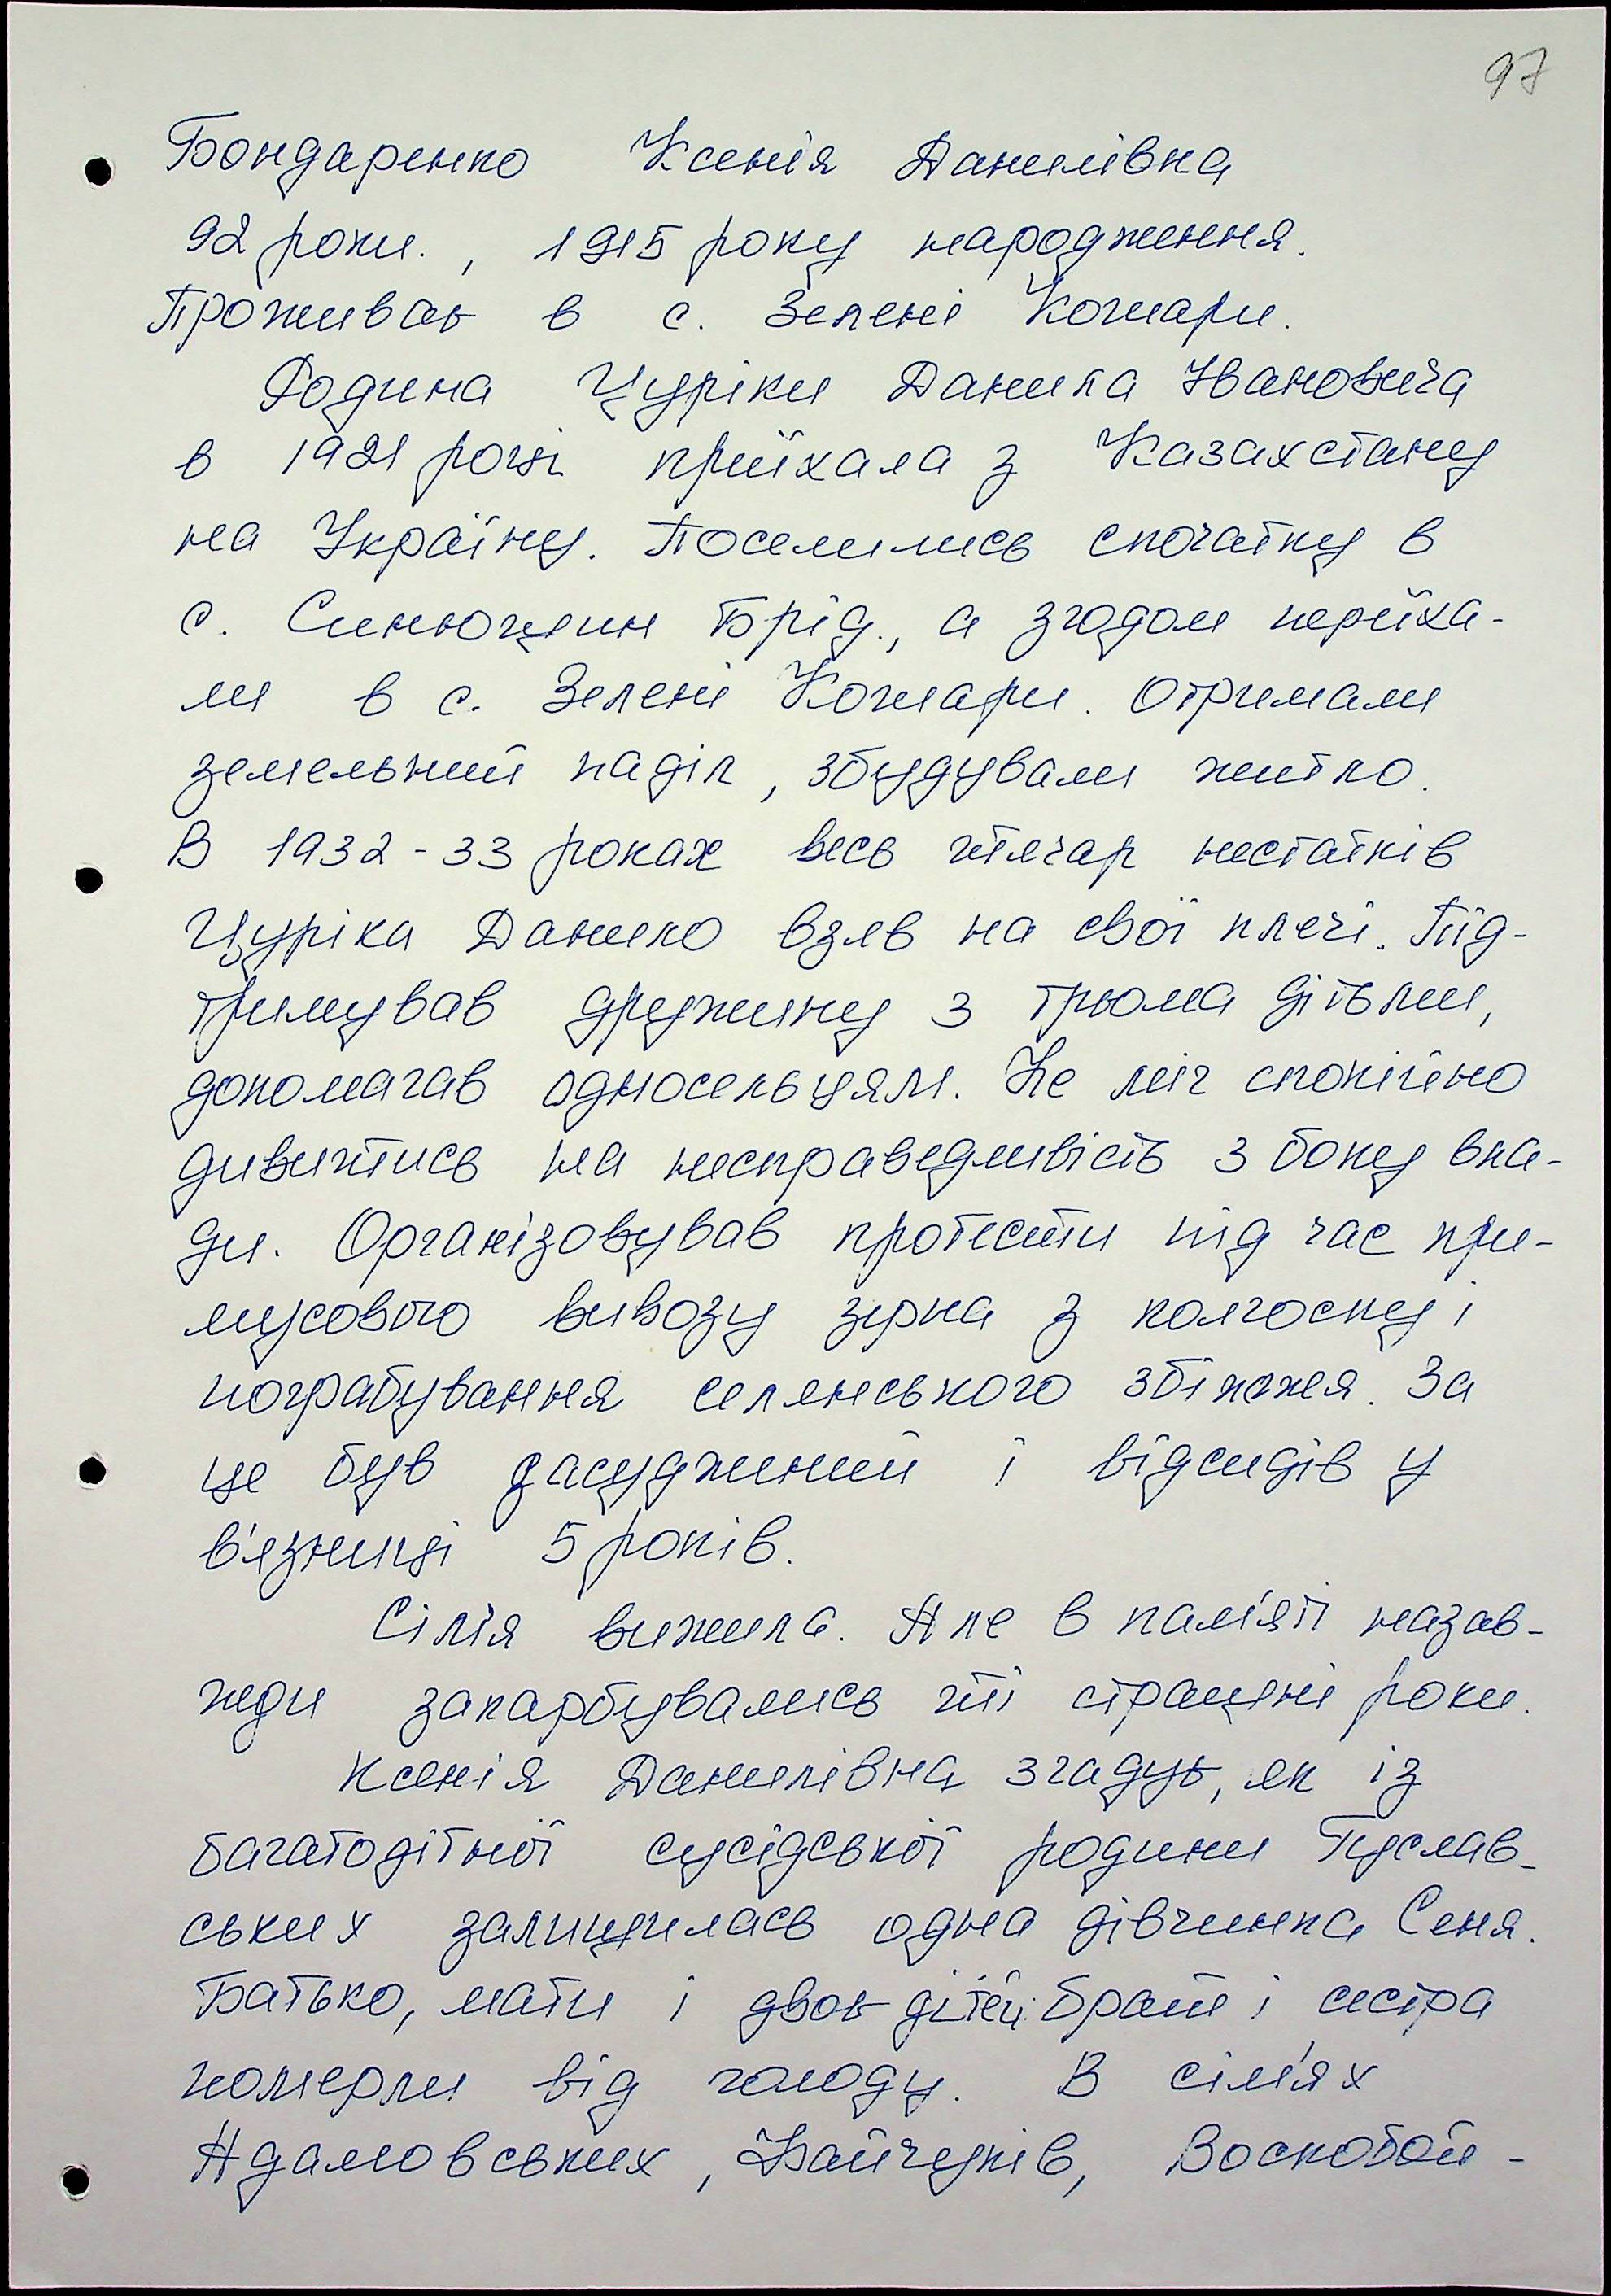 97
Бондаренко Ксенія Данилівна
92 роки., 1915 року народження.
Проживає в с. Зелені Кошари.
Родина Цуріки Данила Івановича
в 1921 році приїхала з Казахстану
на Україну. Поселились спочатку в
с. Синюшин Брід., а згодом переїха-
ли в с. Зелені Кошари. Отримали
земельний наділ, збудували житло.
В 1932-33 роках весь тягар нестатків
Цуріка Данило взяв на свої плечі. Під-
тримував дружину з трьома дітьми,
допомагав односельцям. Не міг спокійно
дивитись на несправедливість з боку вла-
ди. Організовував протести під час при-
мусового вивозу зерна з колгоспу і
пограбування селянського збіжжя. За
це був засуджений і відсидів у
в'язниці 5 років.
Сім'я вижила. Але в пам'яті назав-
жди закарбувались ті страшні роки.
Ксенія Данилівна згадує, як із
багатодітної сусідської родини Гуслав-
ських залишилась одна дівчинка Сеня.
Батько, мати і двоє дітей: брат і сестра
померли від голоду. В сім'ях
Адамовських, Байчуків, Воскобой-